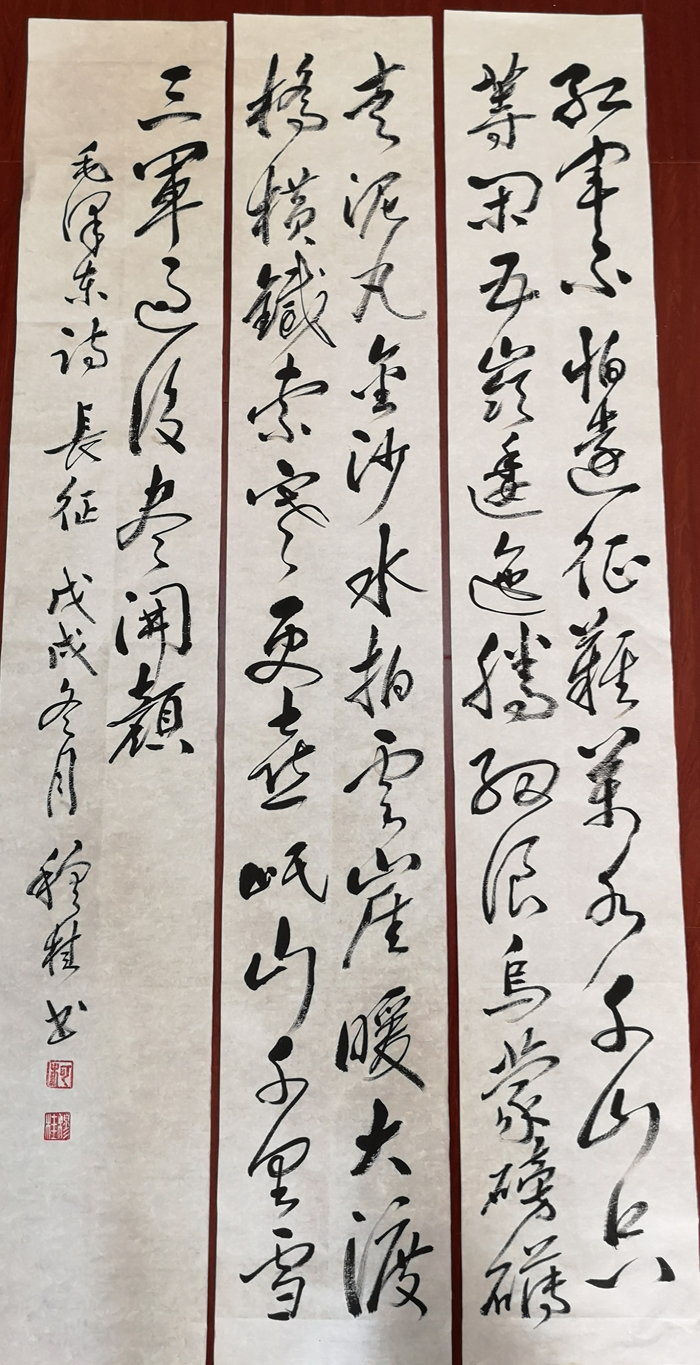 红军不怕遠征難萬水千山只
等闲五嶺逶迤腾細浪烏蒙磅礴
走泥丸金沙水拍雲崖暖大渡
橋横鐵索寒更喜岷山千里雪
三軍过後尽開顔
毛泽东诗 長征 戊戌冬月 穆桂书
穆桂